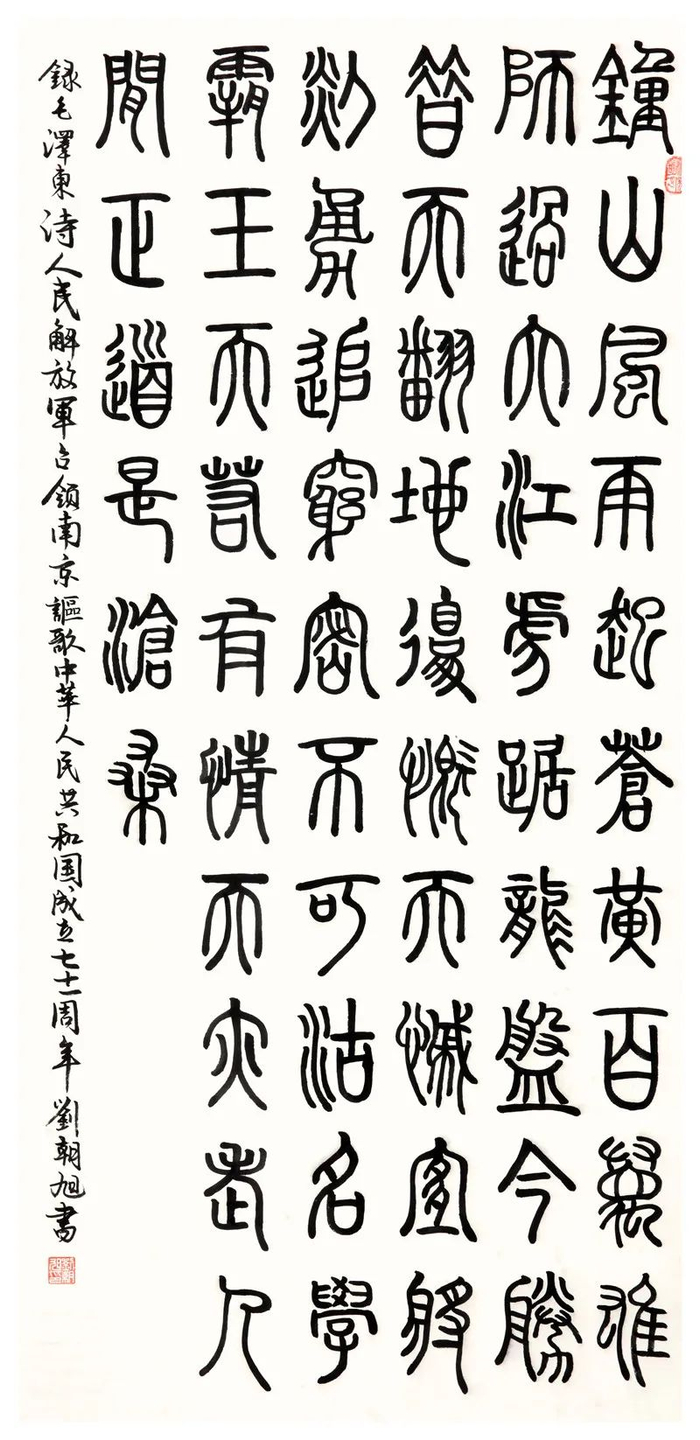 鐘山風雨起蒼黃百萬雄
師過大江虎踞龍盤今勝
昔天翻地復慨而慷宜將
剩勇追窮寇不可沽名學
霸王天若有情天亦老人
間正道是滄桑
録毛澤東诗人民解放軍占領南京謳歌中華人民共和国成立七十一周年劉朝旭書